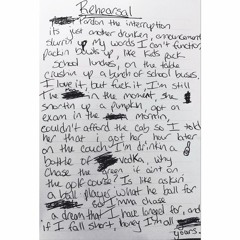 Rehearsal
Pardon the interruption
its just another drunken, announcement
slurrin up My words I can't function,
packin bowls up, like kids pack
school lunches, on the table
crushin up a bunch of school buses.
I hate it, but fuck it, I'm still
in the moment, she
snortin up a pumpkin, opt on
exam in the mornin,
couldn't afford the cab so I told
her that i got her, hour later
on the couch I'm drinkin a
bottle of vodka, why
chase the green if aint on
the golf course? Is like askin
a ball player what he ball for
so Imma chase
a dream that I have longed for, and
if I fall short, honey I'm all
yours.